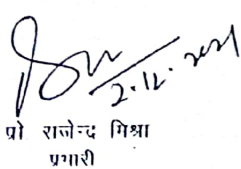 2.12.2021
प्रो राजेन्द मिश्रा
प्रभारी